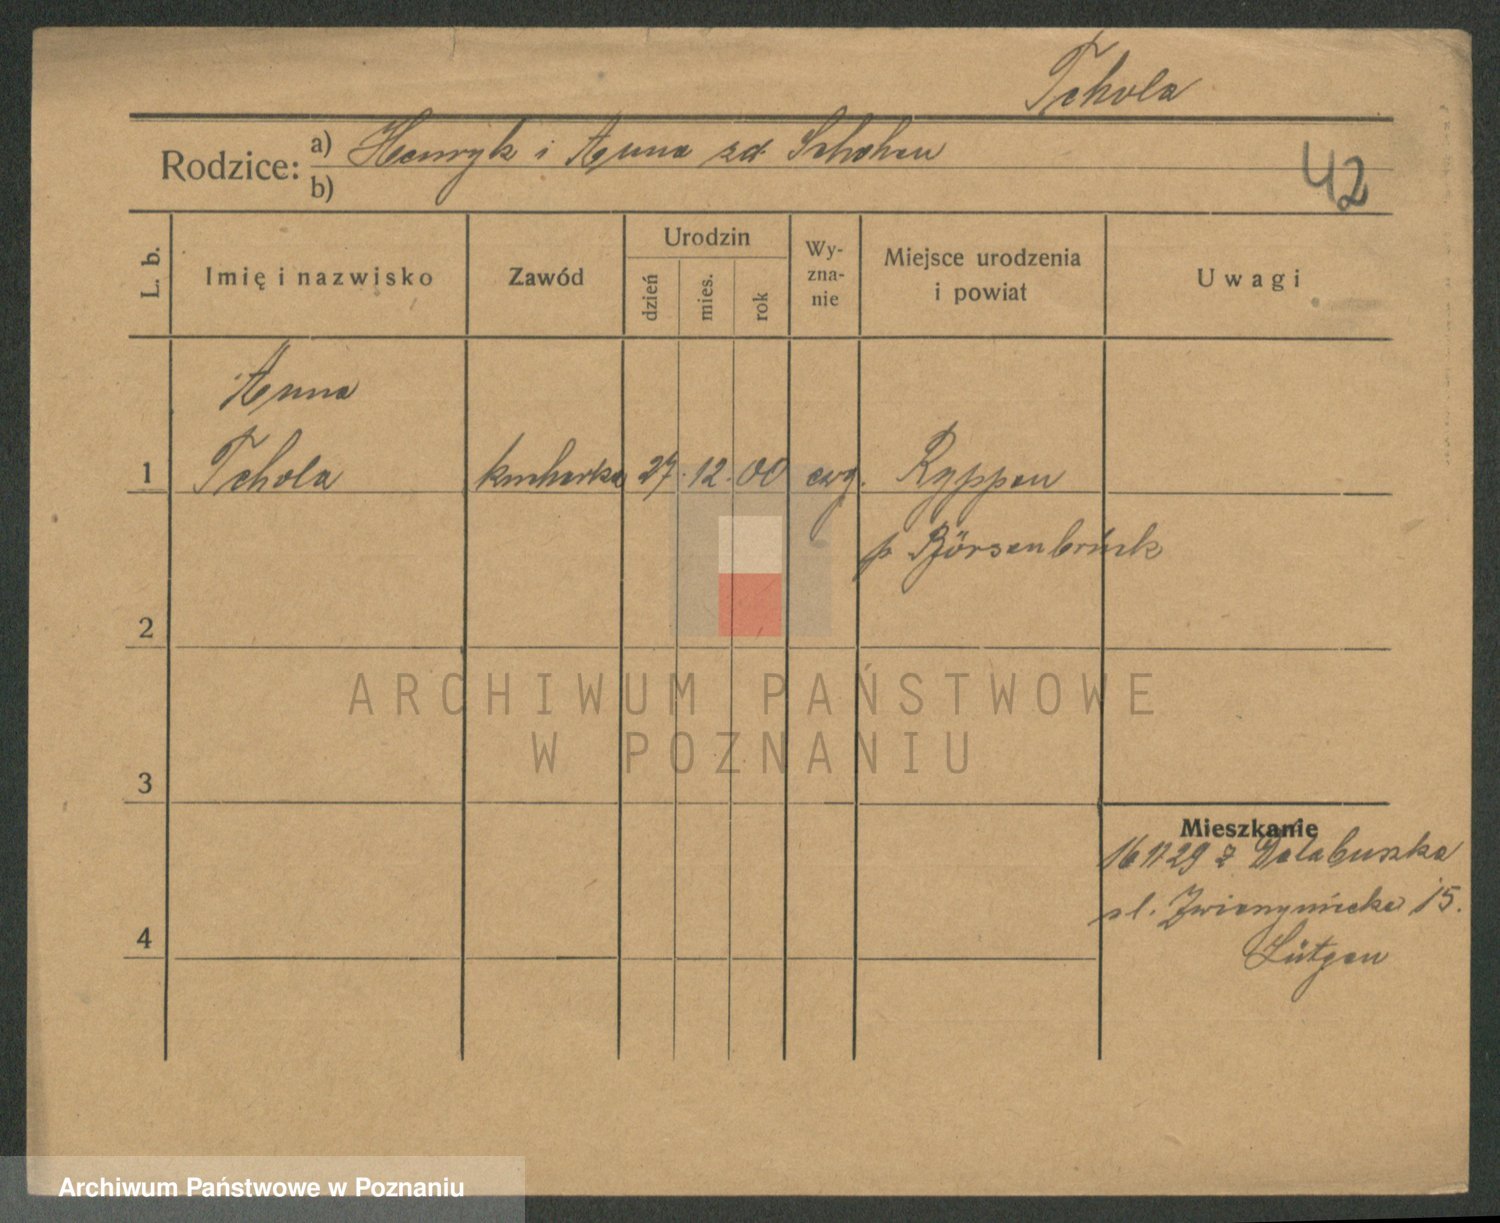 Tchola
Rodzice: a) Henryk i Anna zd
b)
42
L. b. Imię i nazwisko Zawód Urodzin dzień mies. rok Wy-zna-nie Miejsce urodzenia i powiat Uwagi
Anna
1 Tchola kucharka 27. 12. 00 ewg. Ryppen
p Börsenbrück
2
ARCHIWUM PAŃSTWOWE
W POZNANIU
3
Mieszkanie
z
ul. Zwierzyniecka 15.
4
Lütgen
Archiwum Państwowe w Poznaniu